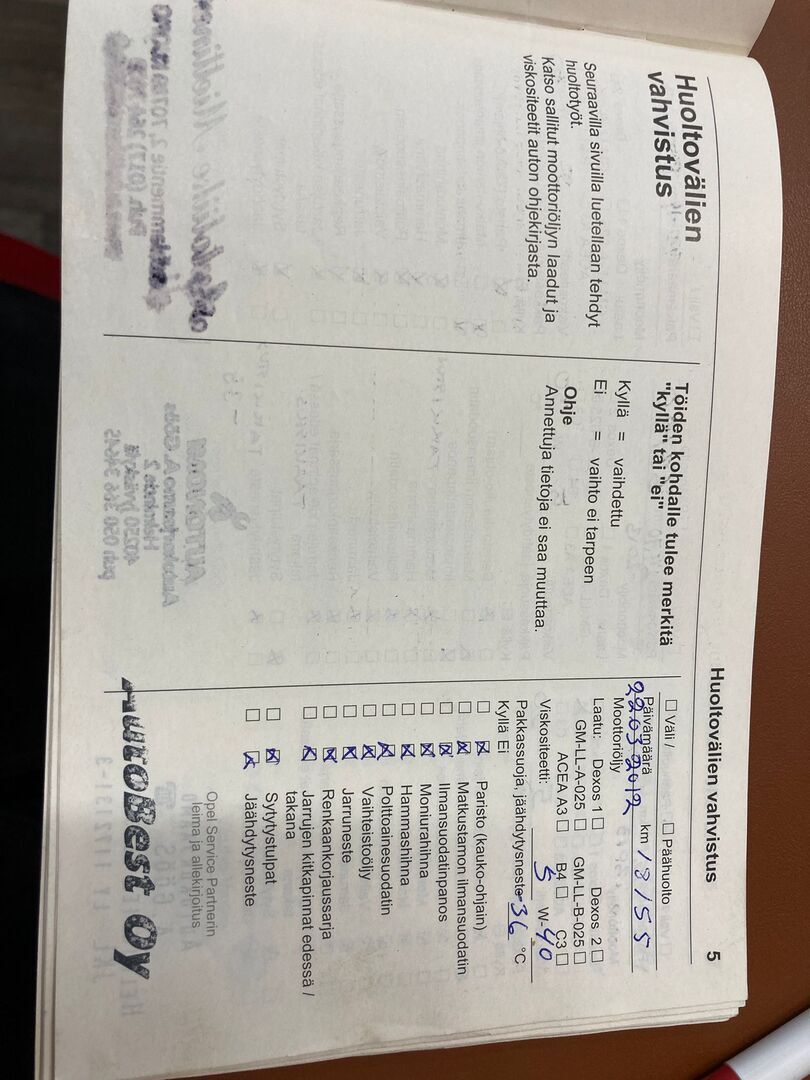 Huoltovälien
vahvistus
Seuraavilla sivuilla luetellaan tehdyt
huoltotyöt.
Katso sallitut moottoriöljyn laadut ja
viskositeetit auton ohjekirjasta.
Töiden kohdalle tulee merkitä
"kyllä" tai "ei"
Kyllä = vaihdettu
Ei = vaihto ei tarpeen
Ohje
Annettuja tietoja ei saa muuttaa.
Huoltovälien vahvistus 5
☐ Väli / ☐ Päähuolto
Päivämäärä km
22032012 18155
Moottoriöljy
Laatu: Dexos 1 ☐ Dexos 2 ☐
GM-LL-A-025 ☐ GM-LL-B-025 ☐
ACEA A3 ☐ B4 ☐ C3 ☐
Viskositeetti: 5 W-40
Pakkassuoja, jäähdytysneste -36 °C
Kyllä Ei
☐ ☒ Paristo (kauko-ohjain)
☐ ☒ Matkustamon ilmansuodatin
☐ ☒ Ilmansuodatinpanos
☐ ☒ Moniurahihna
☐ ☒ Hammashihna
☐ ☒ Polttoainesuodatin
☐ ☒ Vaihteistoöljy
☐ ☒ Jarruneste
☐ ☒ Renkaankorjaussarja
☐ ☒ Jarrujen kitkapinnat edessä /
takana
☐ ☒ Sytytystulpat
☐ ☒ Jäähdytysneste
Opel Service Partnerin
leima ja allekirjoitus
AutoBest Oy